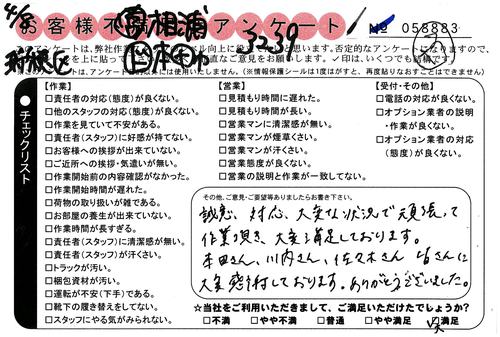 4/8
お客様不満足アンケート
№ 058883
3239
【作業】
□責任者の対応(態度)が良くない。
□他のスタッフの対応(態度)が良くない。
□作業を見ていて不安がある。
□責任者(スタッフ)に好感が持てない。
□お客様への挨拶が出来ていない。
□ご近所への挨拶・気遣いが無い。
□作業開始前の内容確認がなかった。
□作業開始時間が遅れた。
□荷物の取り扱いが雑である。
□お部屋の養生が出来ていない。
□作業時間が長すぎる。
□責任者(スタッフ)に清潔感が無い。
□責任者(スタッフ)が汗くさい。
□トラックが汚い。
□梱包資材が汚い。
□運転が不安(下手)である。
□靴下の履き替えをしてない。
□スタッフにやる気がみられない。
【営業】
□見積もり時間に遅れた。
□見積もり時間が長い。
□営業マンに清潔感が無い。
□営業マンが煙草くさい。
□営業マンが汗くさい。
□営業態度が良くない。
□営業の説明と作業が一致してない。
【受付・その他】
□電話の対応が良くない。
□オプション業者の説明
・作業が良くない。
□オプション業者の対応
(態度)が良くない。
●チェックリスト
その他、ご意見・ご要望等ありましたらお書き下さい。
誠意、対応、大変な状況で頑張って
作業頂き、大変満足しております。
本田さん、川内さん、佐々木さん 皆さんに
大変感謝しております。ありがとうございました。
☆当社をご利用いただきまして、ご満足いただけたでしょうか?
□不満 □やや不満 □普通 □やや満足 □満足